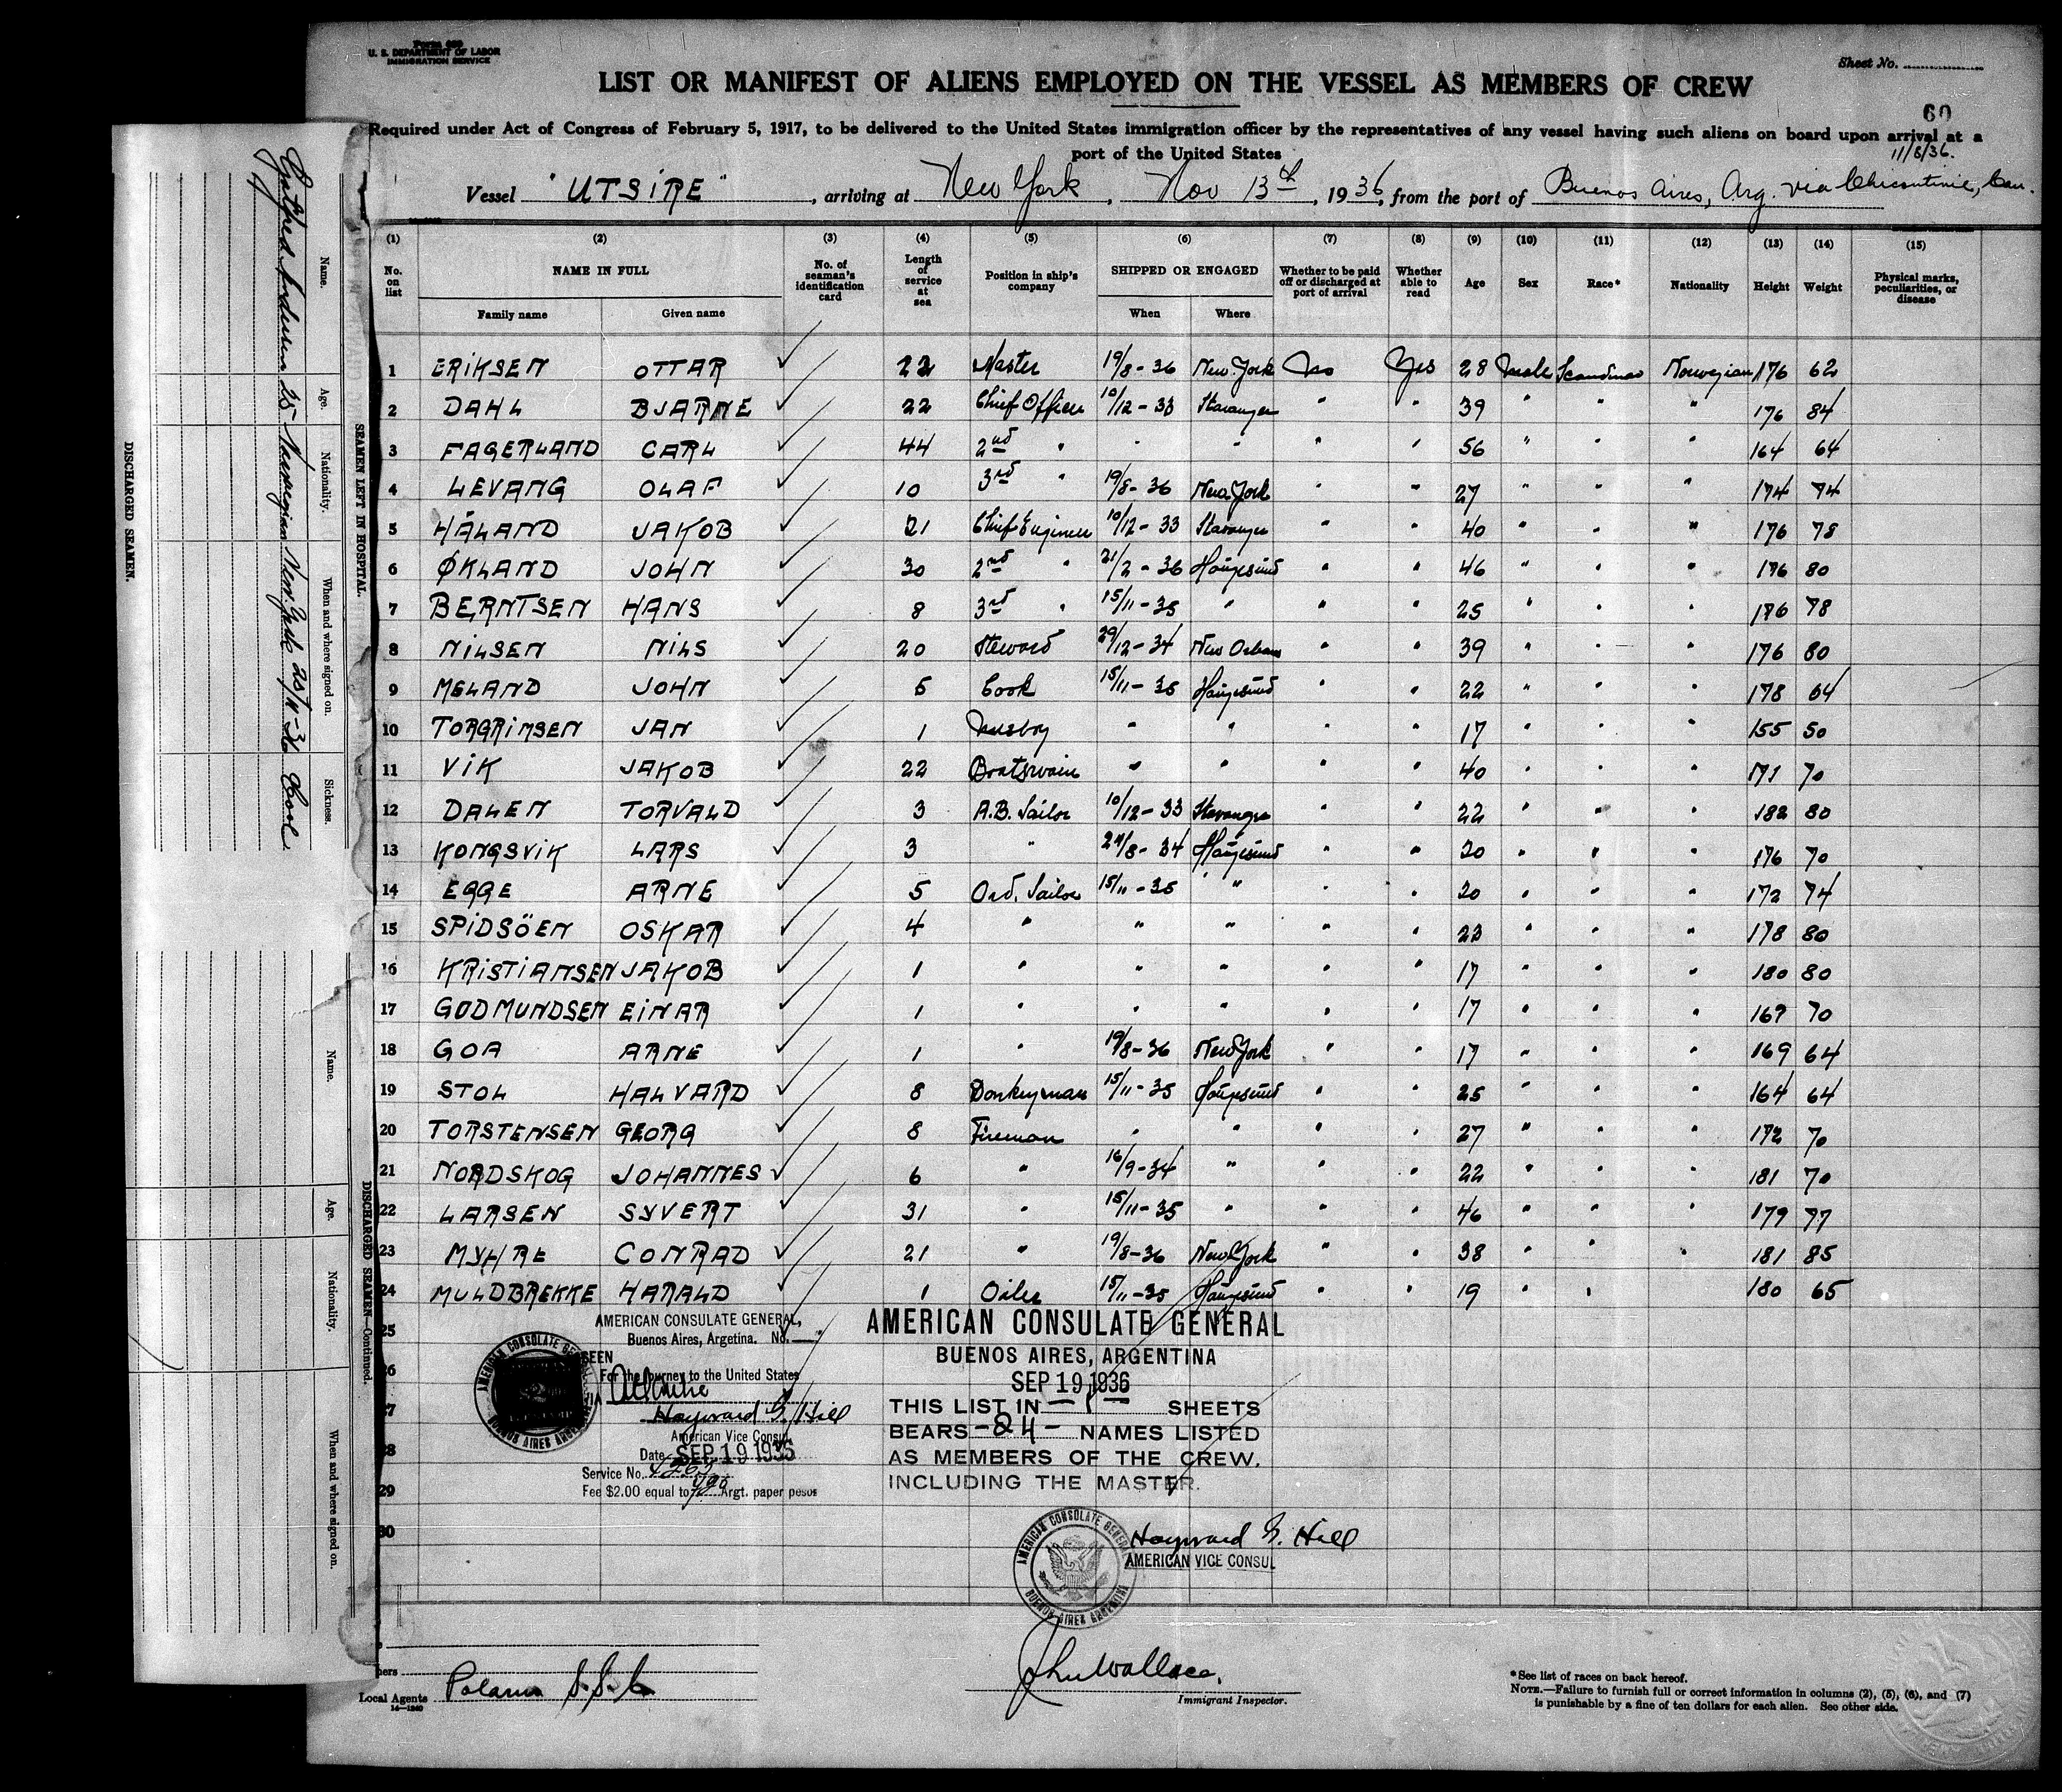 Form 689
U. S. DEPARTMENT OF LABOR
IMMIGRATION SERVICE
Sheet No.
LIST OR MANIFEST OF ALIENS EMPLOYED ON THE VESSEL AS MEMBERS OF CREW
60
Required under Act of Congress of February 5, 1917, to be delivered to the United States immigration officer by the representatives of any vessel having such aliens on board upon arrival at a
port of the United States
11/8/36.
Vessel "UTSIRE", arriving at New York, Nov 13th, 1936, from the port of Buenos Aires, Arg. via Chicoutimi, Can.
(1) (2) (3) (4) (5) (6) (7) (8) (9) (10) (11) (12) (13) (14) (15)
No. on list NAME IN FULL No. of seaman's identification card Length of service at sea Position in ship's company SHIPPED OR ENGAGED Whether to be paid off or discharged at port of arrival Whether able to read Age Sex Race* Nationality Height Weight Physical marks, peculiarities, or disease
Family name Given name When Where
1 ERIKSEN OTTAR ✓ 22 Master 19/8-36 New York No Yes 28 male Scandinav Norwegian 176 62
2 DAHL BJARNE ✓ 22 Chief Officer 10/12-33 Stavanger " " 39 " " " 176 84
3 FAGERLAND CARL ✓ 44 2nd " " " " " 56 " " " 164 64
4 LEVANG OLAF ✓ 10 3rd " 19/8-36 New York " " 27 " " " 174 74
5 HÅLAND JAKOB ✓ 21 Chief Engineer 10/12-33 Stavanger " " 40 " " " 176 78
6 ØKLAND JOHN ✓ 30 2nd " 21/2-36 Haugesund " " 46 " " " 176 80
7 BERNTSEN HANS ✓ 8 3rd " 15/11-35 " " " 25 " " " 176 78
8 NILSEN NILS ✓ 20 Steward 29/12-34 New Orleans " " 39 " " " 176 80
9 MELAND JOHN ✓ 5 Cook 15/11-35 Haugesund " " 22 " " " 178 64
10 TORGRIMSEN JAN ✓ 1 Messboy " " " " 17 " " " 155 50
11 VIK JAKOB ✓ 22 Boatswain " " " " 40 " " " 171 70
12 DALEN TORVALD ✓ 3 A.B. Sailor 10/12-33 Stavanger " " 22 " " " 182 80
13 KONGSVIK LARS ✓ 3 " 24/8-34 Haugesund " " 20 " " " 176 70
14 EGGE ARNE ✓ 5 Ord. Sailor 15/11-35 " " " 20 " " " 172 74
15 SPIDSÖEN OSKAR ✓ 4 " " " " " 23 " " " 178 80
16 KRISTIANSEN JAKOB ✓ 1 " " " " " 17 " " " 180 80
17 GODMUNDSEN EINAR ✓ 1 " " " " " 17 " " " 167 70
18 GOA ARNE ✓ 1 " 19/8-36 New York " " 17 " " " 169 64
19 STOL HALVARD ✓ 8 Donkeyman 15/11-35 Haugesund " " 25 " " " 164 64
20 TORSTENSEN GEORG ✓ 8 Fireman " " " " 27 " " " 172 70
21 NORDSKOG JOHANNES ✓ 6 " 16/9-34 " " " 22 " " " 181 70
22 LARSEN SYVERT ✓ 31 " 15/11-35 " " " 46 " " " 179 77
23 MYHRE CONRAD ✓ 21 " 19/8-36 New York " " 38 " " " 181 85
24 MULDBREKKE HARALD ✓ 1 Oiler 15/11-35 Haugesund " " 19 " " 180 65
25
26
27
28
29
30
AMERICAN CONSULATE GENERAL,
Buenos Aires, Argetina. No.
SEEN
For the journey to the United States
Hayward G. Hill
American Vice Consul
Date SEP 19 1936
Service No.
Fee $2.00 equal to Argt. paper pesos
AMERICAN CONSULATE GENERAL
BUENOS AIRES ARGENTINA
AMERICAN CONSULATE GENERAL
BUENOS AIRES, ARGENTINA
SEP 19 1936
THIS LIST IN -1- SHEETS
BEARS -24- NAMES LISTED
AS MEMBERS OF THE CREW.
INCLUDING THE MASTER.
AMERICAN CONSULATE GENERAL
BUENOS AIRES ARGENTINA
Hayward G. Hill
AMERICAN VICE CONSUL
Local Agents
14—1240
John Wallace.
Immigrant Inspector.
*See list of races on back hereof.
NOTE.—Failure to furnish full or correct information in columns (2), (5), (6), and (7)
is punishable by a fine of ten dollars for each alien. See other side.
SEAMEN LEFT IN HOSPITAL.
Name. Age. Nationality. When and where signed on. Sickness.
Andersen 25 Norwegian New York
DISCHARGED SEAMEN.
DISCHARGED SEAMEN—Continued.
Name. Age. Nationality. When and where signed on.